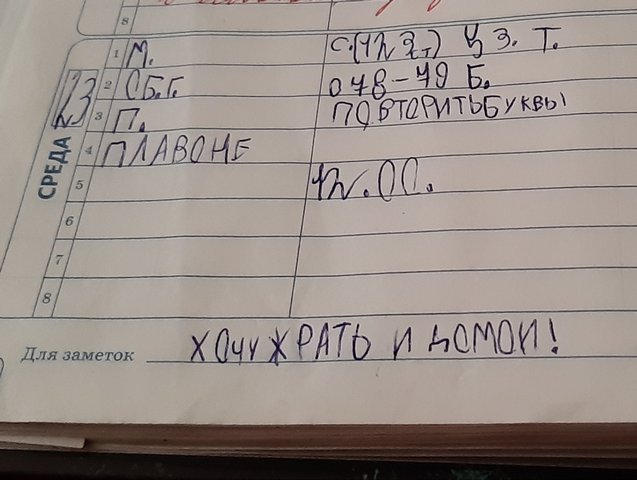 8
СРЕДА 23
1 М. С.(12 З.) У З. Т.
2 СБ.Г. 078-79 Б.
3 П. ПОВТОРИТЬ БУКВЫ
4 ПЛАВОНЕ
5 12.00.
6
7
8
Для заметок ХОЧУ ЖРАТЬ И ДОМОЙ!